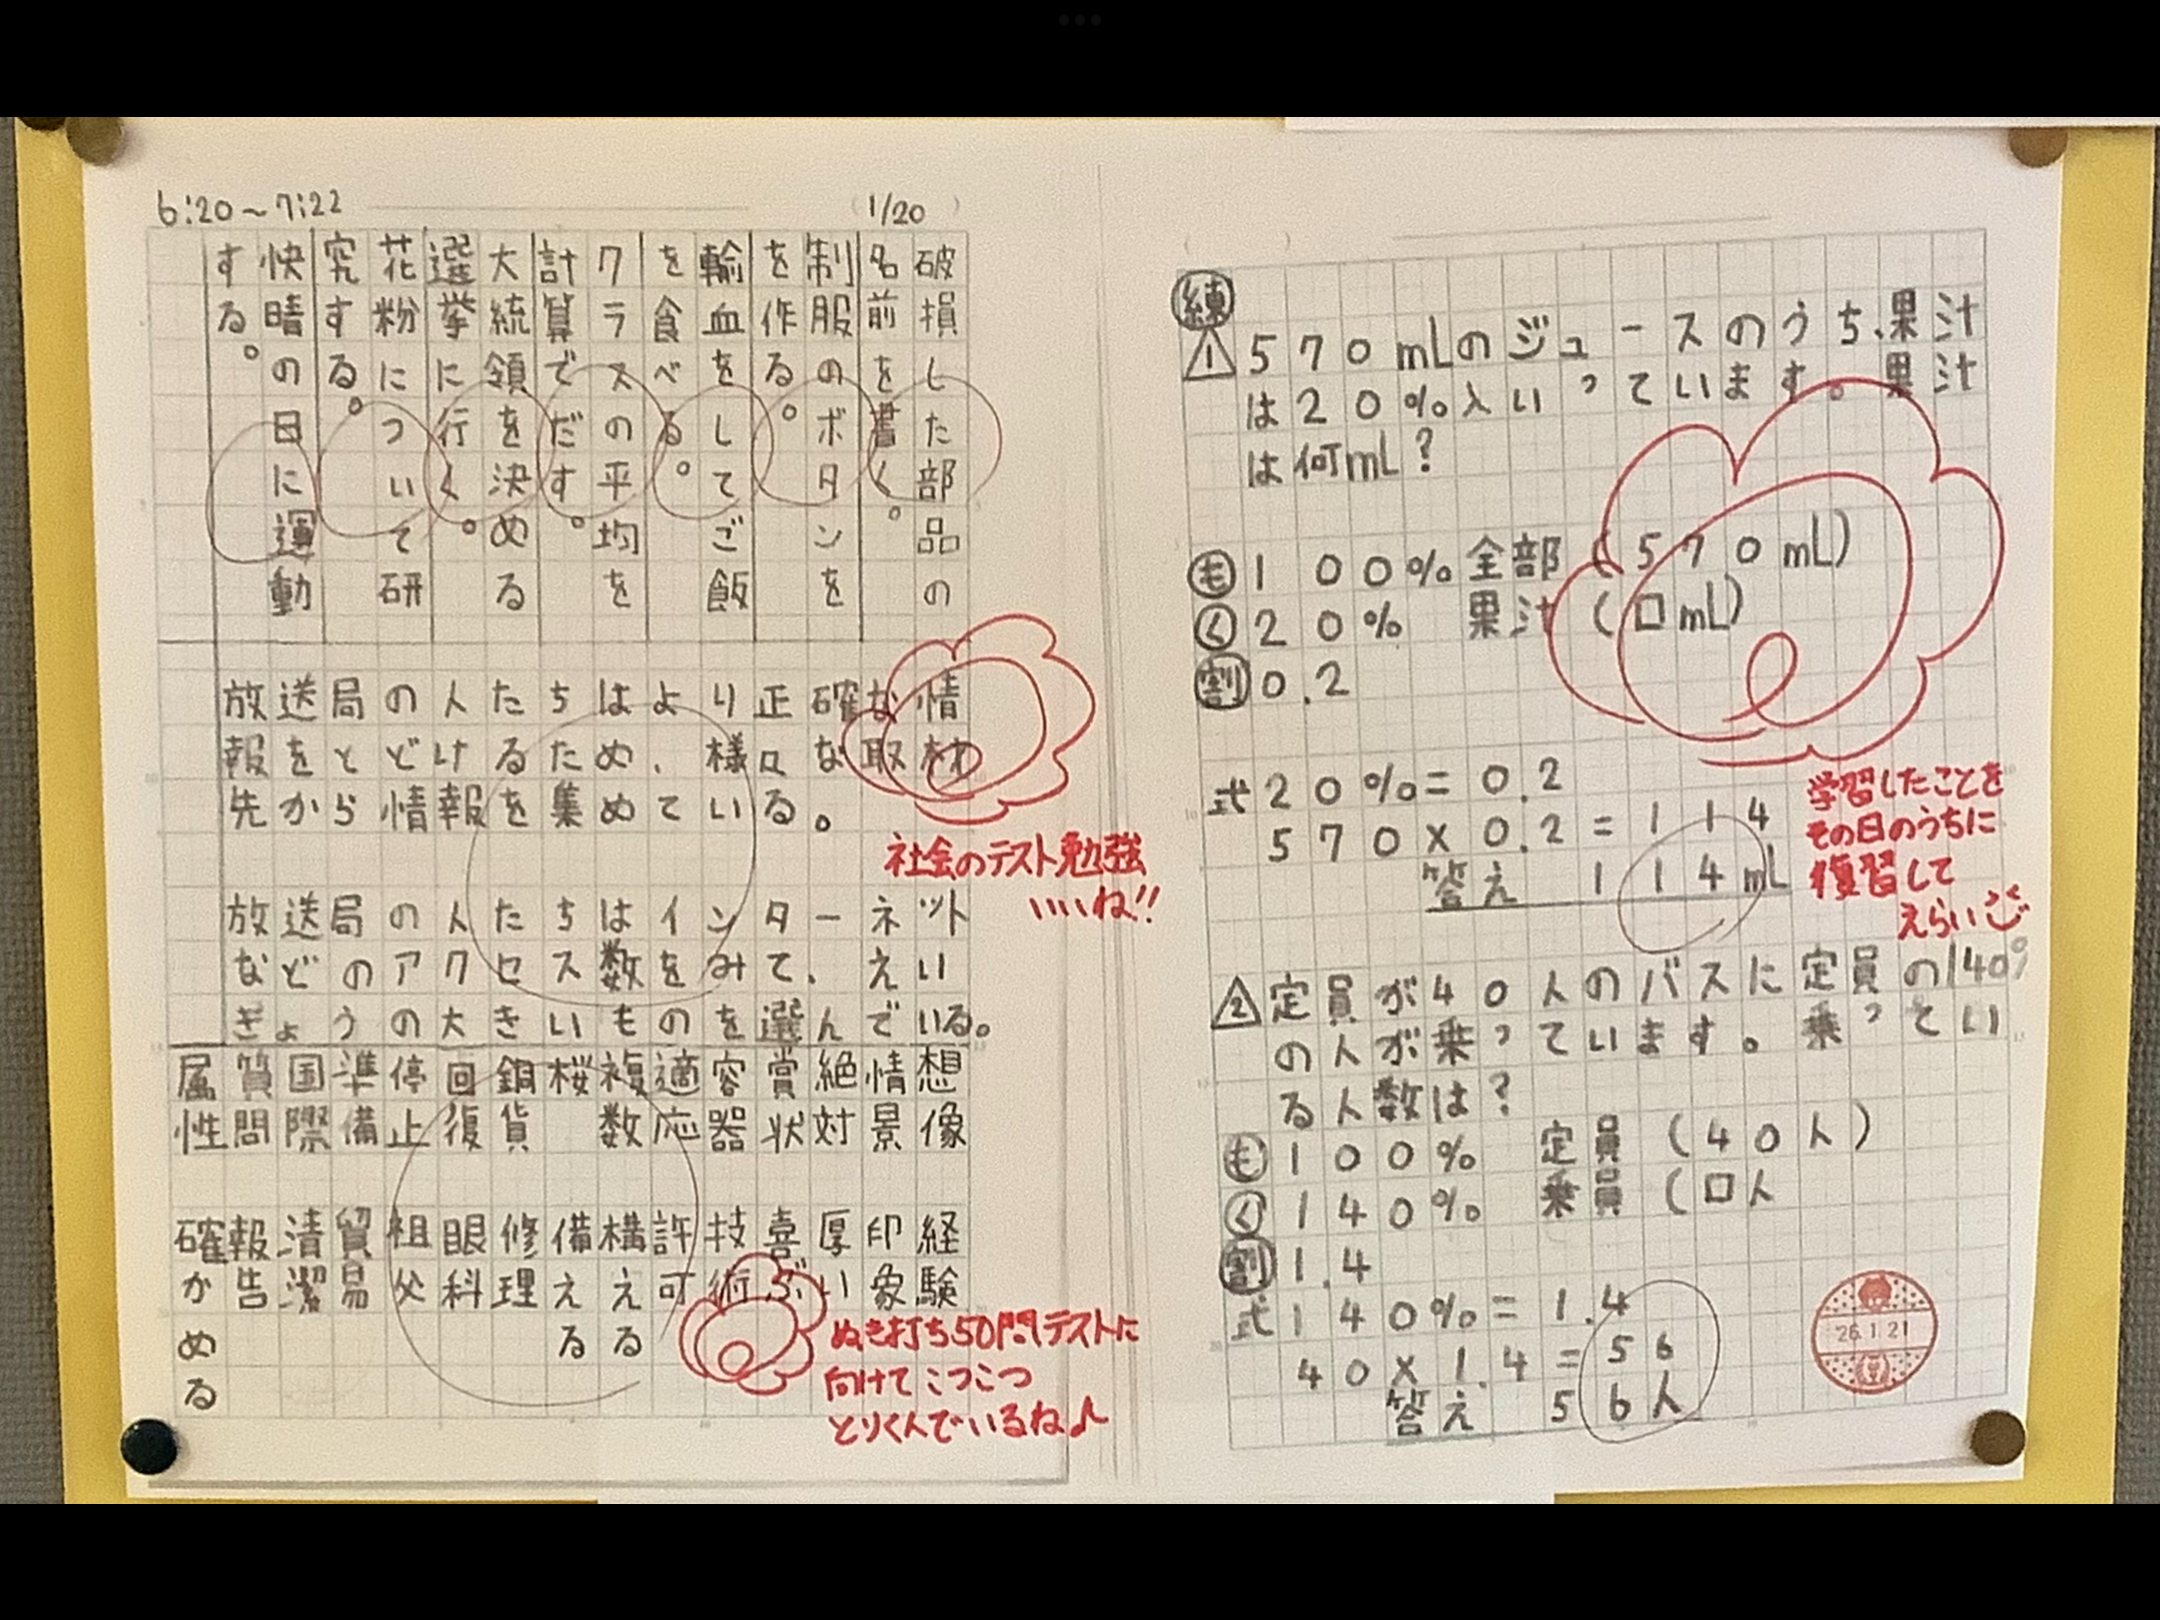 6:20～7:22
(1/20)
破損した部品の
名前を書く。
制服のボタンを
を作る。
輸血をしてご飯
を食べる。
クラスの平均を
計算でだす。
大統領を決める
選挙に行く。
花粉について研
究する。
快晴の日に運動
する。
放送局の人たちはより正確な情
報をとどけるため、様々な取材
先から情報を集めている。
社会のテスト勉強
いいね!!
放送局の人たちはインターネット
などのアクセス数をみて、えい
ぎょうの大きいものを選んでいる。
想像
情景
絶対
賞状
容器
適応
複数
桜
銅貨
回復
停止
準備
国際
質問
属性
経験
印象
厚い
喜ぶ
技術
許可
構える
備える
修理
眼科
祖父
貿易
清潔
報告
確かめる
ぬき打ち50問テストに
向けてこつこつ
とりくんでいるね♪
練
1 570mLのジュースのうち、果汁
は20%入いっています。果汁
は何mL?
も 100% 全部(570mL)
く 20% 果汁(□mL)
割 0.2
式 20%=0.2
570×0.2=114
答え 114mL
学習したことを
その日のうちに
復習して
えらい
2 定員が40人のバスに定員の140%
の人が乗っています。乗ってい
る人数は?
も 100% 定員(40人)
く 140% 乗員(□人
割 1.4
式 140%=1.4
40×1.4=56
答え 56人
26.1.21